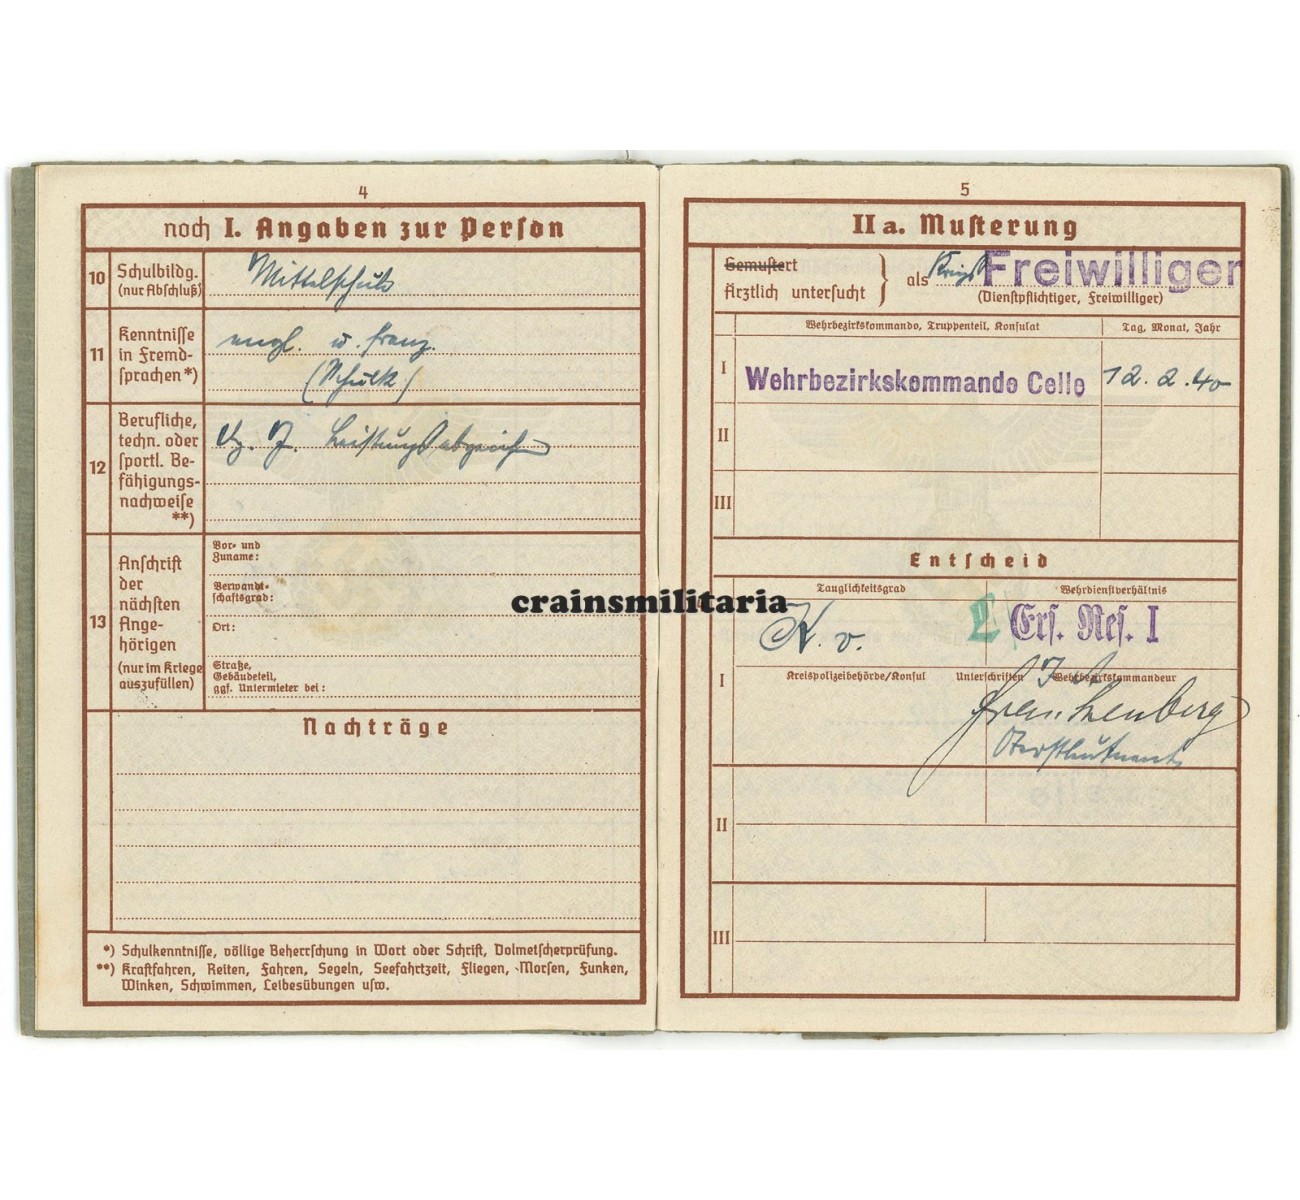 4
noch I. Angaben zur Person
10 Schulbildg. (nur Abschluß) Mittelschule
11 Kenntnisse in Fremd-sprachen*) engl. u. franz.
(Schulk)
12 Berufliche, techn. oder sportl. Be-fähigungs-nachweise **) H. J. Leistungsabzeichen
13 Anschrift der nächsten Ange-hörigen (nur im Kriege auszufüllen)
Vor- und Zuname:
Verwandt-schaftsgrad:
Ort:
Straße, Gebäudeteil, ggf. Untermieter bei:
Nachträge
*) Schulkenntnisse, völlige Beherrschung in Wort oder Schrift, Dolmetscherprüfung.
**) Kraftfahren, Reiten, Fahren, Segeln, Seefahrtzeit, Fliegen, Morsen, Funken,
Winken, Schwimmen, Leibesübungen usw.
crainsmilitaria
5
IIa. Musterung
Gemustert
Ärztlich untersucht } als Freiwilliger
(Dienstpflichtiger, Freiwilliger)
Wehrbezirkskommando, Truppenteil, Konsulat Tag, Monat, Jahr
I Wehrbezirkskommando Celle 12.2.40
II
III
Entscheid
Tauglichkeitsgrad Wehrdienstverhältnis
K. v. Ers. Res. I
I Kreispolizeibehörde/Konsul Unterschriften Wehrbezirkskommandeur
Oberstleutnant
II
III